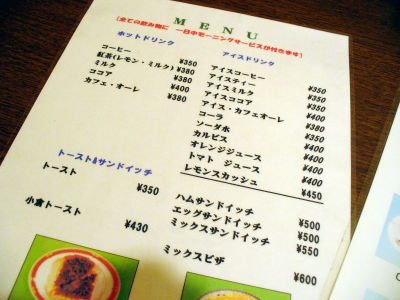 MENU
(全ての飲み物に 一日中モーニングサービスが付きます)
ホットドリンク
コーヒー ¥350
紅茶(レモン・ミルク) ¥380
ミルク ¥380
ココア ¥400
カフェ・オーレ ¥380
アイスドリンク
アイスコーヒー ¥350
アイスティー ¥350
アイスミルク ¥350
アイスココア ¥400
アイス・カフェオーレ ¥400
コーラ ¥380
ソーダ水 ¥350
カルピス ¥400
オレンジジュース ¥400
トマト ジュース ¥400
レモンスカッシュ ¥450
トースト&サンドイッチ
トースト ¥350
小倉トースト ¥430
ハムサンドイッチ ¥500
エッグサンドイッチ ¥500
ミックスサンドイッチ ¥550
ミックスピザ ¥600